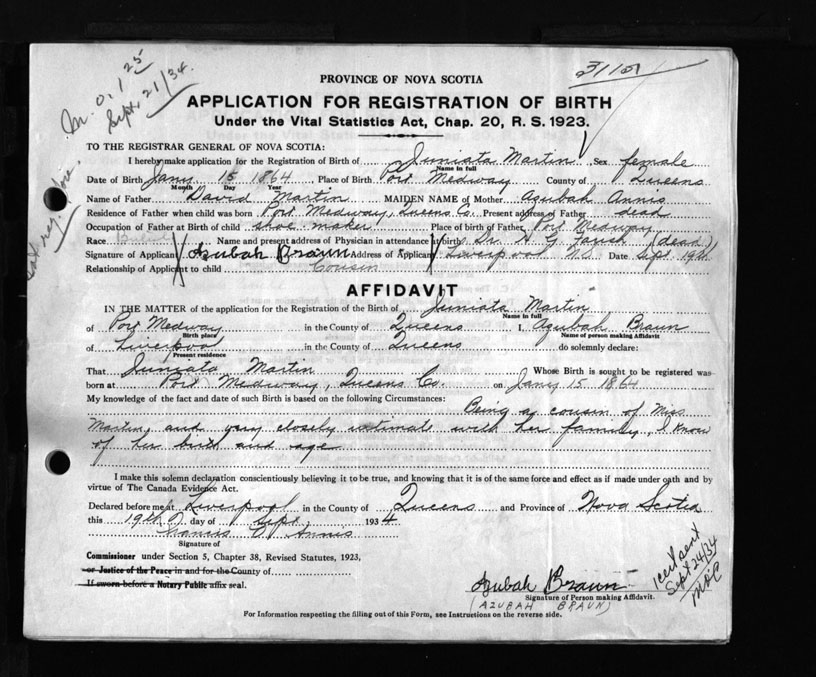 M. O. 1 25
Sept 21/34.
31101
PROVINCE OF NOVA SCOTIA
APPLICATION FOR REGISTRATION OF BIRTH
Under the Vital Statistics Act, Chap. 20, R. S. 1923.
TO THE REGISTRAR GENERAL OF NOVA SCOTIA:
I hereby make application for the Registration of Birth of Juniata Martin Sex female
Name in full
Date of Birth Jany 15 1864 Place of Birth Port Medway County of Queens
Month Day Year
Name of Father David Martin MAIDEN NAME of Mother Azubah Annis
Residence of Father when child was born Port Medway, Queens Co. Present address of Father dead
Occupation of Father at Birth of child shoe maker Place of birth of Father Port Medway
Race Name and present address of Physician in attendance at birth Dr. H G Farish (dead)
Signature of Applicant Azubah Braun Address of Applicant Liverpool N.S. Date Sept. 19th
Relationship of Applicant to child Cousin
AFFIDAVIT
IN THE MATTER of the application for the Registration of the Birth of Juniata Martin
Name in full
of Port Medway in the County of Queens I, Azubah Braun
Birth place Name of person making Affidavit
of Liverpool in the County of Queens do solemnly declare:
Present residence
That Juniata Martin Whose Birth is sought to be registered was
born at Port Medway, Queens Co. on Jany 15 1864
My knowledge of the fact and date of such Birth is based on the following Circumstances:
Being a cousin of Miss
Martin, and very closely intimate with her family, I know
of her birth and age
I make this solemn declaration conscientiously believing it to be true, and knowing that it is of the same force and effect as if made under oath and by
virtue of The Canada Evidence Act.
Declared before me at Liverpool in the County of Queens and Province of Nova Scotia
this 19th day of Sept 1934
Francis Annis
Signature of
Commissioner under Section 5, Chapter 38, Revised Statutes, 1923,
or Justice of the Peace in and for the County of
If sworn before a Notary Public affix seal.
1 cert sent
Sept 24/34
Azubah Braun
Signature of Person making Affidavit.
(AZUBAH BRAUN)
For Information respecting the filling out of this Form, see Instructions on the reverse side.